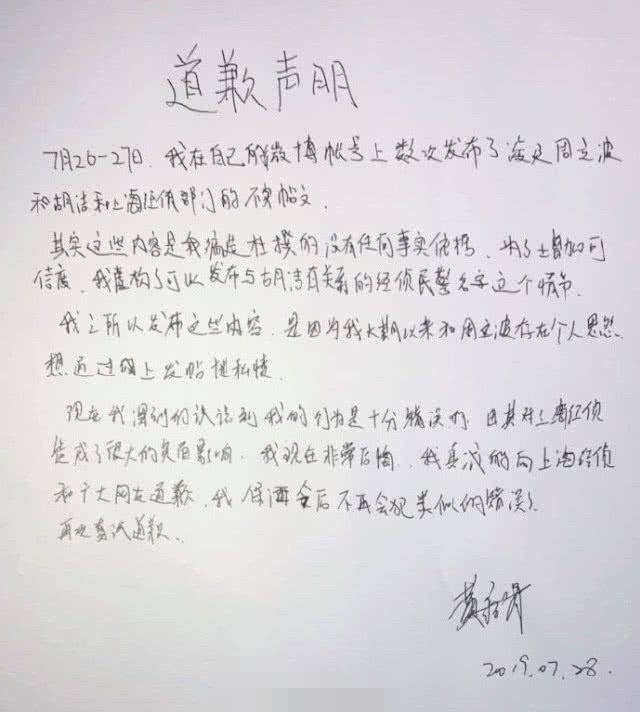 道歉声明
7月26-27日,我在自己的微博帐号上数次发布了涉及周立波
和胡洁和上海经侦部门的不实帖文.
其实这些内容是我编造杜撰的没有任何事实依据,为了增加可
信度,我虚构了可以发布与胡洁有关系的经侦民警名字这个情节.
我之所以发布这些内容,是因为我长期以来和周立波存在个人恩怨.
想通过网上发帖泄私愤.
现在我深刻的认识到我的行为是十分错误的,尤其对上海经侦
造成了很大的负面影响.我现在非常后悔,我真诚的向上海经侦
和广大网友道歉,我保证今后不再会犯类似的错误.
再次真诚道歉.
2019.07.28